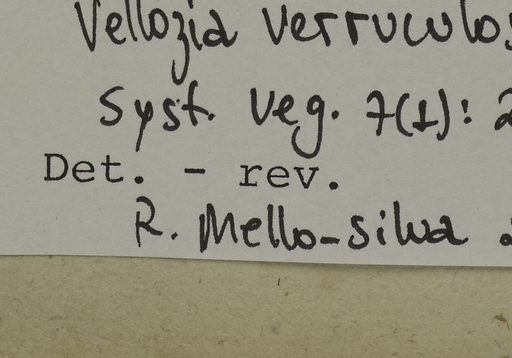 Vellozia verruculos
Syst. Veg. 7(1): 2
Det. - rev.
R. Mello-Silva